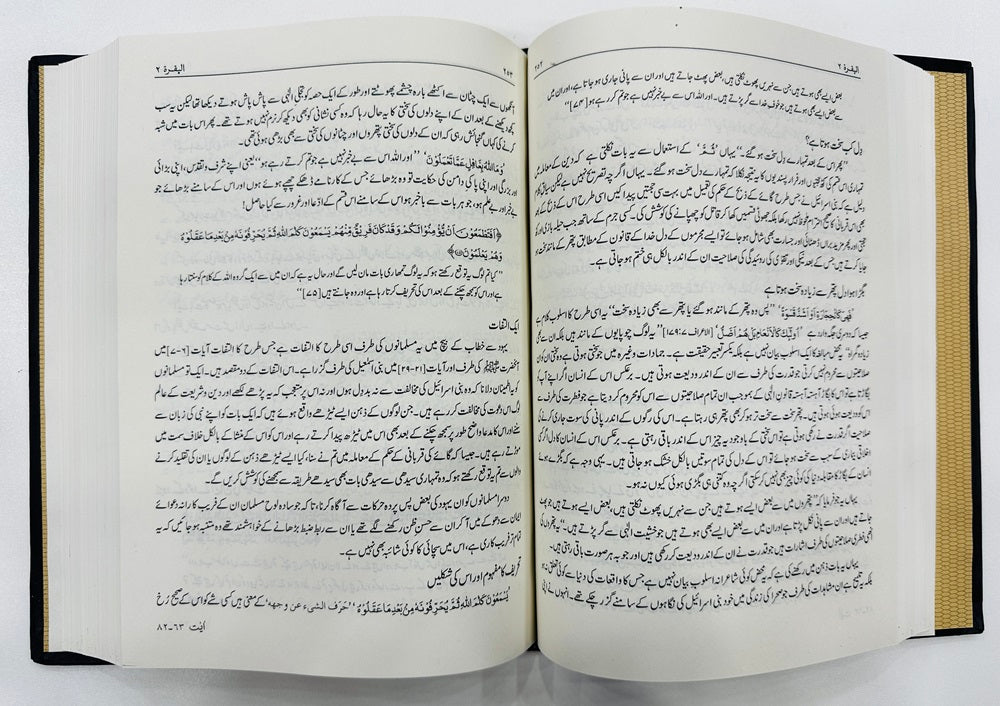 البقرة ۲
۲۵۲
بعض ایسے بھی ہوتے ہیں جن سے نہریں پھوٹ نکلتی ہیں، بعض پھٹ جاتے ہیں اور ان سے پانی جاری ہو جاتا ہے، اور ان میں
سے بعض ایسے بھی ہوتے ہیں جو خوف خدا سے گر پڑتے ہیں۔ اور اللہ اس سے بے خبر نہیں ہے جو تم کر رہے ہو [۷۴]
دل کب سخت ہوتا ہے؟
”پھر اس کے بعد تمہارے دل سخت ہو گئے۔“ یہاں ’ثُمَّ‘ کے استعمال سے یہ بات نکلتی ہے کہ دین کے معاملہ میں
تمہاری اس قسم کی کٹ حجتیوں اور فرار پسندیوں کا یہ نتیجہ نکلا کہ تمہارے دل سخت ہو گئے۔ یہاں اگرچہ تصریح نہیں ہے لیکن سیاق کلام
دلیل ہے کہ بنی اسرائیل نے جس طرح گائے کے ذبح کے حکم کی تعمیل میں بہت سی حجتیں پیدا کیں اسی طرح اس کے ذبح کے بعد
بھی قربانی کا صحیح احترام ملحوظ نہیں رکھا بلکہ جھوٹی قسمیں کھا کر قاتل کو چھپانے کی کوشش کی۔ کسی جرم کے ساتھ جب حیلہ بازی اور کٹ
حجتی اور پھر مزید برآں ڈھٹائی اور جسارت بھی شامل ہو جائے تو ایسے مجرموں کے دل خدا کے قانون کے مطابق پتھر کے مانند سخت ہو
جایا کرتے ہیں جس کے بعد نیکی اور تقویٰ کی روئیدگی کی صلاحیت ان کے اندر بالکل ہی ختم ہو جاتی ہے۔
بگڑا ہوا دل پتھر سے زیادہ سخت ہوتا ہے
’فَهِيَ كَالْحِجَارَةِ أَوْ أَشَدُّ قَسْوَةً‘ ”پس وہ پتھر کے مانند ہو گئے یا پتھر سے بھی زیادہ سخت“ یہ اسی طرح کا اسلوب کلام ہے
جیسا کہ دوسری جگہ وارد ہے ’أُولَٰئِكَ كَالْأَنْعَامِ بَلْ هُمْ أَضَلُّ‘ (الاعراف ۷: ۱۷۹) ”یہ لوگ چوپایوں کے مانند ہیں بلکہ ان سے بھی
زیادہ گمراہ“ یہ محض مبالغہ کا ایک اسلوب بیان نہیں ہے بلکہ یکسر تعبیر حقیقت ہے۔ جمادات وغیرہ میں جو سختی ہوتی ہے وہ سختی ان کو ان
صلاحیتوں سے محروم نہیں کرتی جو قدرت کی طرف سے ان کے اندر ودیعت ہوتی ہیں۔ برعکس اس کے انسان اگر اپنے آپ کو
بگاڑتا ہے تو اس کا بگاڑ آہستہ آہستہ قانون الٰہی کے بموجب ان تمام صلاحیتوں سے اس کو محروم کر دیتا ہے جو فطرت کی طرف سے
اس کو ودیعت ہوئی ہوتی ہیں۔ پتھر سخت سے سخت تر ہو کر بھی پتھر ہی رہتا ہے۔ اس کی رگوں کے اندر پانی کی سوت جاری کرنے کی
صلاحیت اگر قدرت نے رکھی ہوتی ہے تو اس سختی کے باوجود یہ چیز اس کے اندر باقی رہتی ہے۔ برعکس اس کے انسان کا دل اگر کسی
اخلاقی بیماری کے سبب سے سخت ہو جائے تو اس کے دل کی تمام سوتیں بالکل خشک ہو جاتی ہیں۔ یہی وجہ ہے کہ بگڑے ہوئے
انسان کے بگاڑ کا مقابلہ دنیا کی کوئی چیز بھی نہیں کر سکتی اگرچہ وہ کتنی ہی بگڑی ہوئی کیوں نہ ہو۔
یہاں یہ جو فرمایا کہ ”پتھروں میں سے بعض ایسے ہوتے ہیں جن سے نہریں پھوٹ نکلتی ہیں، بعض ایسے ہوتے ہیں جو پھٹ
جاتے ہیں اور ان سے پانی نکل پڑتا ہے اور ان میں سے بعض ایسے بھی ہوتے ہیں جو خشیت الٰہی سے گر پڑتے ہیں۔“ یہ پتھروں کی
انھی فطری صلاحیتوں کی طرف اشارات ہیں جو قدرت نے ان کے اندر ودیعت کر رکھی ہیں اور جو بہر صورت باقی رہتی ہیں۔
یہاں یہ بات ذہن میں رکھنے کی ہے کہ یہ محض کوئی شاعرانہ اسلوب بیان نہیں ہے جس کا واقعات کی دنیا سے کوئی تعلق نہ ہو
بلکہ تلمیح ہے ان مشاہدات کی طرف جو صحرا کی زندگی میں خود بنی اسرائیل کی نگاہوں کے سامنے گزر چکے تھے۔ انہوں نے اپنی
البقرة ۲
۲۵۳
آنکھوں سے ایک چٹان سے اکٹھے بارہ چشمے پھوٹتے اور طور کے ایک حصہ کو تجلی الٰہی سے پاش پاش ہوتے دیکھا تھا لیکن یہ سب
کچھ دیکھنے کے بعد ان کے اپنے دلوں کی سختی کا یہ حال رہا کہ وہ کسی نشانی کو بھی دیکھ کر نرم نہیں ہوتے تھے۔ پھر اس بات میں شبہ
کرنے کی کہاں گنجائش رہی کہ ان کے دلوں کی سختی پتھروں اور چٹانوں کی سختی سے بھی بڑھی ہوئی تھی۔
’وَمَا اللَّهُ بِغَافِلٍ عَمَّا تَعْمَلُونَ‘ ”اور اللہ اس سے بے خبر نہیں ہے جو تم کرتے رہے ہو“ یعنی اپنے شرف و تقدس، اپنی بڑائی
اور بزرگی اور اپنی پاکی دامن کی حکایت تو وہ بڑھائے جس کے کارنامے ڈھکے چھپے ہوئے ہوں اور اس کے سامنے بڑھائے جو
بے خبر اور بے علم ہو، جو ہر بات سے باخبر ہو اس کے سامنے اس قسم کے ادّعا اور غرور سے کیا حاصل!
﴿أَفَتَطْمَعُونَ أَنْ يُؤْمِنُوا لَكُمْ وَقَدْ كَانَ فَرِيقٌ مِنْهُمْ يَسْمَعُونَ كَلَامَ اللَّهِ ثُمَّ يُحَرِّفُونَهُ مِنْ بَعْدِ مَا عَقَلُوهُ
وَهُمْ يَعْلَمُونَ﴾
”کیا تم لوگ یہ توقع رکھتے ہو کہ یہ لوگ تمھاری بات مان لیں گے اور حال یہ ہے کہ ان میں سے ایک گروہ اللہ کے کلام کو سنتا رہا
ہے اور اس کو سمجھ چکنے کے بعد اس کی تحریف کرتا رہا ہے اور وہ جانتے ہیں [۷۵]۔“
ایک التفات
یہود سے خطاب کے بیچ میں یہ مسلمانوں کی طرف اسی طرح کا التفات ہے جس طرح کا التفات آیات [۶-۷] میں
آنحضرت ﷺ کی طرف اور آیات [۲۱-۲۹] میں بنی اسمٰعیل کی طرف گزرا ہے۔ اس التفات کے دو مقصد ہیں۔ ایک تو مسلمانوں
کو یہ اطمینان دلانا کہ وہ بنی اسرائیل کی مخالفت سے نہ بددل ہوں اور نہ اس پر متعجب کہ یہ پڑھے لکھے اور دین و شریعت کے عالم
لوگ اس دعوت کی مخالفت کر رہے ہیں۔ جن لوگوں کے ذہن ایسے ٹیڑھے واقع ہوئے ہیں کہ ایک بات کو اپنے نبی کی زبان سے
سنتے اور اس کا مدعا واضح طور پر سمجھ چکنے کے بعد بھی اس میں ٹیڑھ پیدا کرتے رہے اور اس کو اس کے منشا کے بالکل خلاف سمت میں
موڑتے رہے ہیں۔ جیسا کہ گائے کی قربانی کے حکم کے معاملہ میں تم نے سنا، کیا ایسے ٹیڑھے ذہن کے لوگوں یا ان کی تقلید کرنے
والوں سے تم یہ توقع رکھتے ہو کہ وہ تمہاری سیدھی سے سیدھی بات بھی سیدھے طریقہ سے سمجھنے کی کوشش کریں گے۔
دوسرا مسلمانوں کو ان یہود کی بعض پس پردہ حرکات سے آگاہ کرنا تاکہ جو سادہ لوح مسلمان ان کے فریب کارانہ دعوائے
ایمان سے دھوکے میں آ کر ان سے حسن ظن رکھنے لگے تھے یا ان سے ربط ضبط بڑھانے کے خواہشمند تھے وہ متنبہ ہو جائیں کہ یہ
تمام تر فریب کاری ہے، اس میں سچائی کا کوئی شائبہ بھی نہیں ہے۔
تحریف کا مفہوم اور اس کی شکلیں
’يَسْمَعُونَ كَلَامَ اللَّهِ ثُمَّ يُحَرِّفُونَهُ مِنْ بَعْدِ مَا عَقَلُوهُ‘ ’حرّف الشیء عن وجهه‘ کے معنی ہیں کسی شے کو اس کے صحیح رخ
آیت ۶۳-۸۲